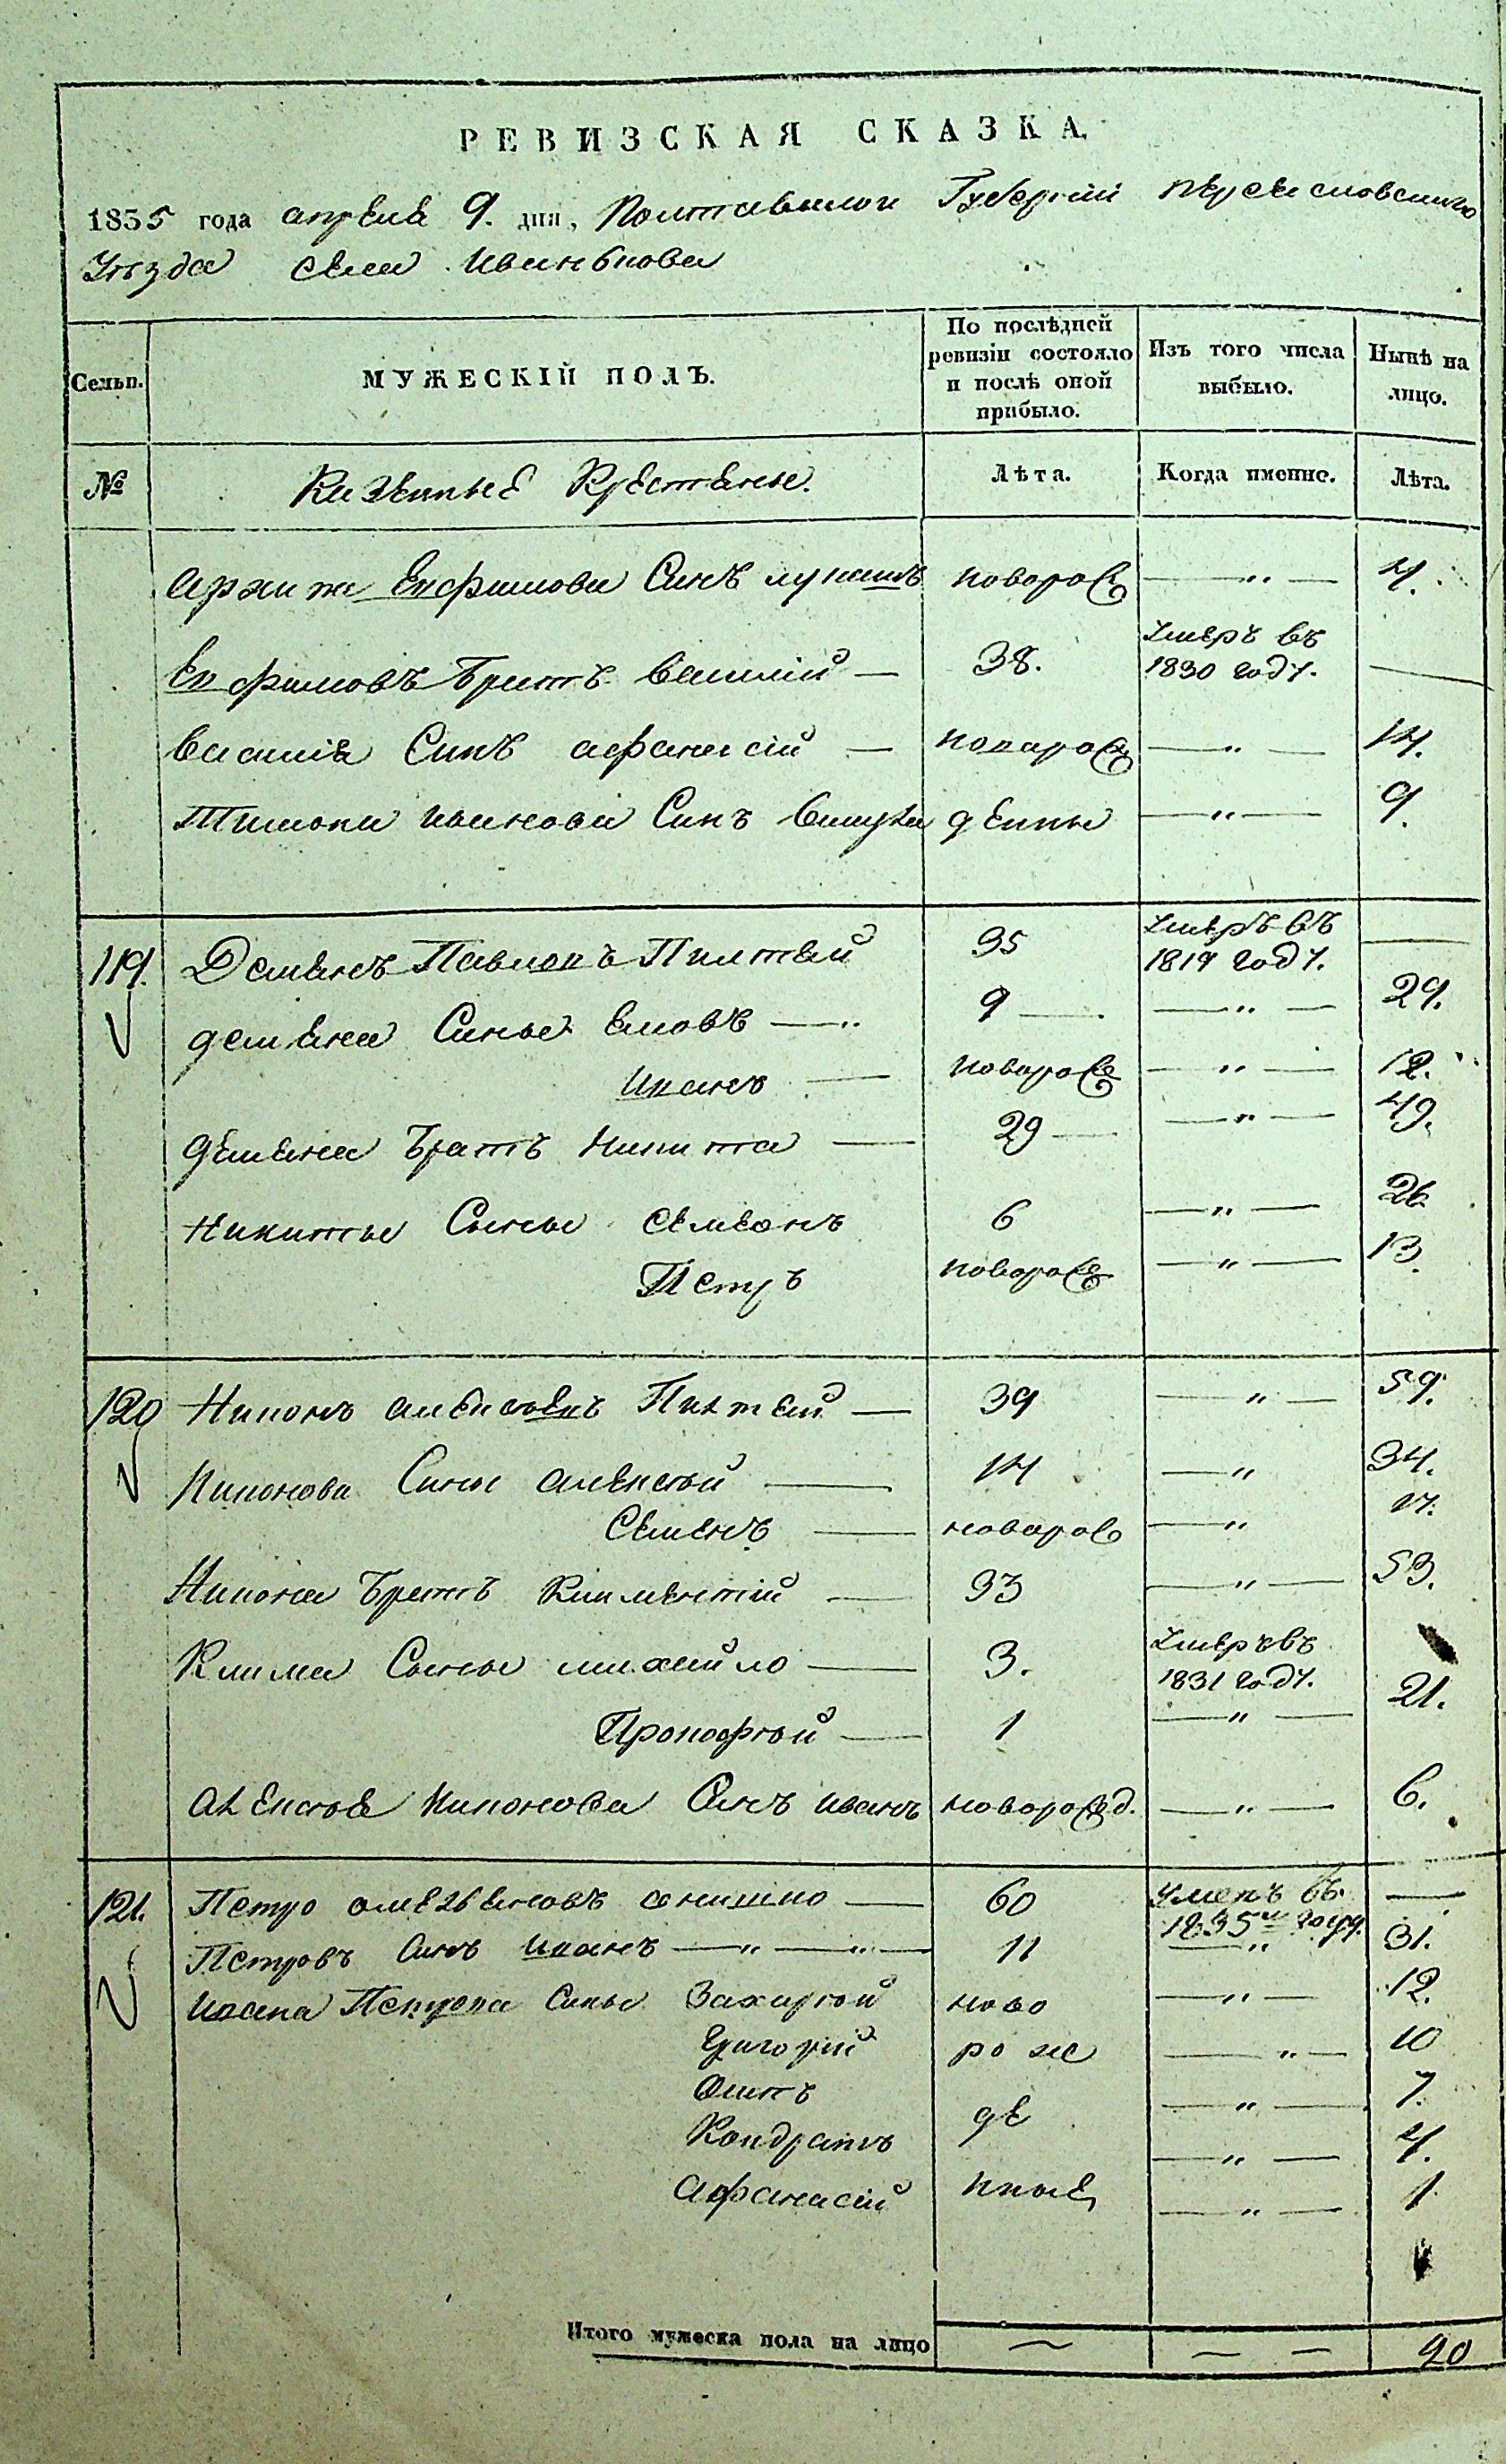 РЕВИЗСКАЯ СКАЗКА.
1835 года апреля 9. дня, Полтавской Губернiи переясловскаго
Уѣзда села Иванькова
Сельп.
МУЖЕСКІЙ ПОЛЪ.
По послѣдней ревизіи состояло и послѣ оной прибыло.
Изъ того числа выбыло.
Нынѣ на лицо.
№ Казенные Крестяне. Лѣта. Когда имянно. Лѣта.
Архипа Евфимова Синъ лукашъ новорож — „ — 4.
Евфимовъ Братъ Василій — 38. Умеръ въ 1830 году. —
Василія Синъ афанасій — новорож — „ — 14.
Тимоша Иванова Синъ денны — „ — 9.
119. Демянъ Павловъ Пилтяй 35 Умеръ въ 1819 году. —
демяна Сины — „ 9 — — „ — 29.
Иванъ — новорож — „ — 12.
демяна Братъ Никита — 29 — — „ — 49.
Никиты Сыны Семионъ 6 — „ — 26
Петръ новорож — „ — 13.
120 Никонъ алексѣевъ Пилтяй — 39 — „ — 59.
Никонова Сины алексѣй — 14 — „ 34.
Семенъ — новорож — „
Никона Братъ Климентій — 33 — „ — 53.
Клима Сыны михайло — 3. Умеръ въ 1831 году.
Прокофѣй — 1 — „ — 21.
алексѣя Никонова Синъ Иванъ новорожд. — „ — 6.
121. Петро — 60 умеръ въ 1835м году. —
Петровъ Синъ Иванъ — „ — „ — 11 — „ 31.
Ивана Петрова Сины Захарѣй ново — „ — 12.
Григорій рож — „ — 10
де — „ — 7.
Кондратъ — „ — 4.
Афанасій нные — „ — 1
Итого мужеска пола на лицо — — — 20